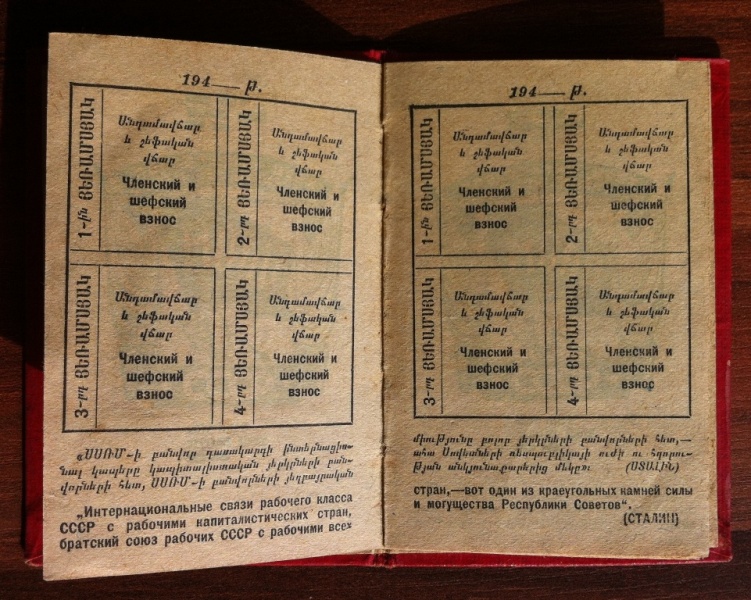 194— թ.
1-ին ՅԵՌԱՄՍՅԱԿ
Անդամավճար
և շեֆական
վճար
Членский и
шефский
взнос
2-րդ ՅԵՌԱՄՍՅԱԿ
Անդամավճար
և շեֆական
վճար
Членский и
шефский
взнос
3-րդ ՅԵՌԱՄՍՅԱԿ
Անդամավճար
և շեֆական
վճար
Членский и
шефский
взнос
4-րդ ՅԵՌԱՄՍՅԱԿ
Անդամավճար
և շեֆական
վճար
Членский и
шефский
взнос
«ՍՍՌՄ-ի բանվոր դասակարգի ինտերնացիո-
նալ կապերը կապիտալիստական յերկրների բան-
վորների հետ, ՍՍՌՄ-ի բանվորների յեղբայրական
„Интернациональные связи рабочего класса
СССР с рабочими капиталистических стран,
братский союз рабочих СССР с рабочими всех
194— թ.
1-ին ՅԵՌԱՄՍՅԱԿ
Անդամավճար
և շեֆական
վճար
Членский и
шефский
взнос
2-րդ ՅԵՌԱՄՍՅԱԿ
Անդամավճար
և շեֆական
վճար
Членский и
шефский
взнос
3-րդ ՅԵՌԱՄՍՅԱԿ
Անդամավճար
և շեֆական
վճար
Членский и
шефский
взнос
4-րդ ՅԵՌԱՄՍՅԱԿ
Անդամավճար
և շեֆական
վճար
Членский и
шефский
взнос
միությունը բոլոր յերկրների բանվորների հետ,—
ահա Սովետների ռեսպուբլիկայի ուժի ու հզորու-
թյան անկյունաքարերից մեկը»։ (ՍՏԱԼԻՆ)
стран,—вот один из краеугольных камней силы
и могущества Республики Советов“.
(СТАЛИН)